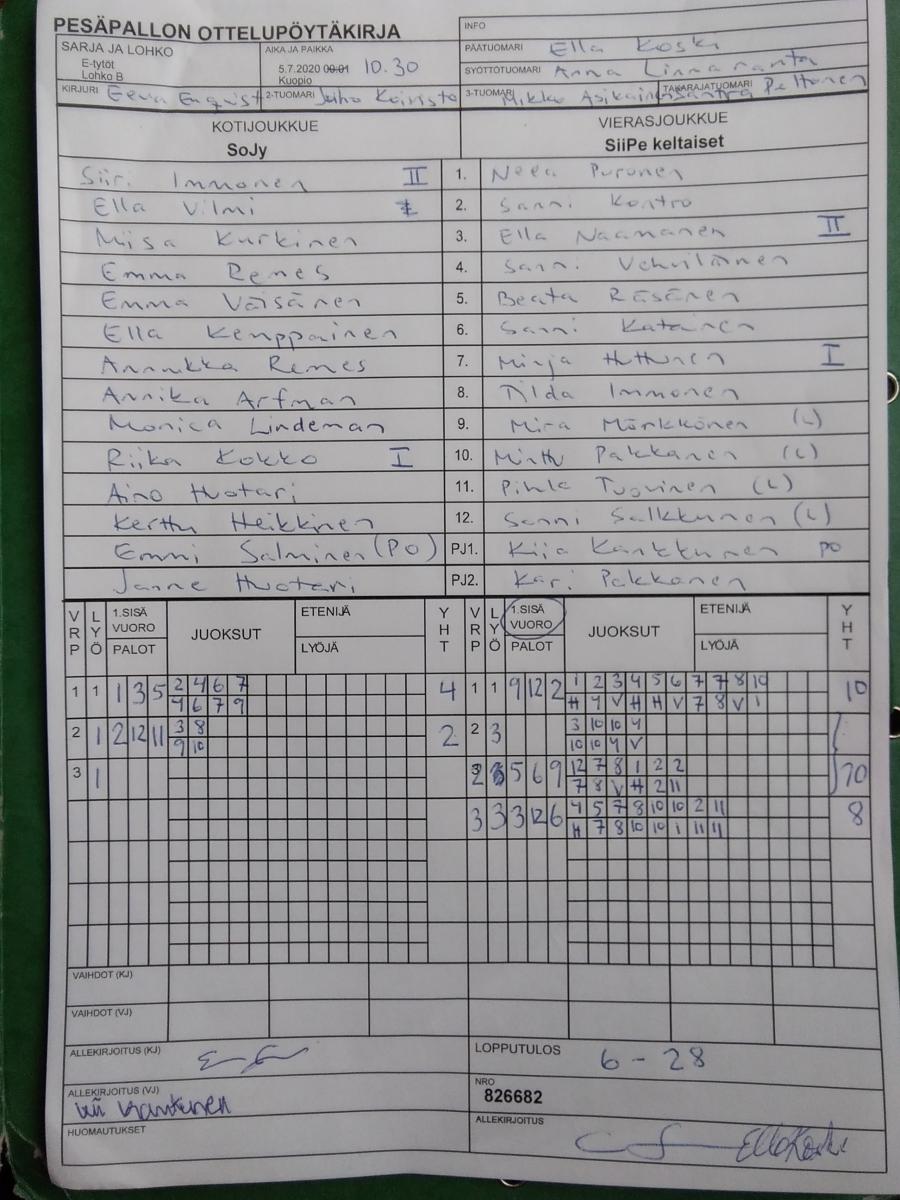 PESÄPALLON OTTELUPÖYTÄKIRJA
INFO
SARJA JA LOHKO
E-tytöt
Lohko B
AIKA JA PAIKKA
5.7.2020 00:01 10.30
Kuopio
PÄÄTUOMARI Ella Koski
SYÖTTÖTUOMARI Anna Linnaranta
KIRJURI Eeva Enqvist 2-TUOMARI Juho Koivisto 3-TUOMARI Mikko Asikainen TAKARAJATUOMARI Santra Peltonen
KOTIJOUKKUE
SoJy
VIERASJOUKKUE
SiiPe keltaiset
Siiri Immonen II 1. Neea Puronen
Ella Vilmi I 2. Sanni Kontro
Miisa Kurkinen 3. Ella Naamanen II
Emma Renes 4. Sanni Vehviläinen
Emma Väisänen 5. Beata Räsänen
Ella Kemppainen 6. Sanni Katainen
Annukka Remes 7. Minja Huttunen I
Annika Arfman 8. Tilda Immonen
Monica Lindeman 9. Mira Märkkönen (L)
Riika Kokko I 10. Minttu Pakkanen (L)
Aino Huotari 11. Pihla Tuovinen (L)
Kerttu Heikkinen 12. Sanni Salkkunen (L)
Emmi Salminen (PO) PJ1. Kiia Kankkunen PO
Janne Huotari PJ2. Kari Pakkanen
VRP LYÖ 1.SISÄ VUORO PALOT JUOKSUT ETENIJÄ LYÖJÄ YHT VRP LYÖ 1.SISÄ VUORO PALOT JUOKSUT ETENIJÄ LYÖJÄ YHT
1 1 1 3 5 2 4 6 7 4 1 1 9 12 2 1 2 3 4 5 6 7 7 8 10 10
4 6 7 9 H 4 V H H V 7 8 V 1
2 1 2 12 11 3 8 2 2 3 3 10 10 4
9 10 10 10 4 V
3 1 2 3 5 6 9 12 7 8 1 2 2 10
7 8 V H 2 11
3 3 3 12 6 4 5 7 8 10 10 2 11 8
H 7 8 10 10 1 11 11
VAIHDOT (KJ)
VAIHDOT (VJ)
ALLEKIRJOITUS (KJ)
LOPPUTULOS 6 - 28
ALLEKIRJOITUS (VJ)
NRO
826682
HUOMAUTUKSET
ALLEKIRJOITUS
Ella Koski